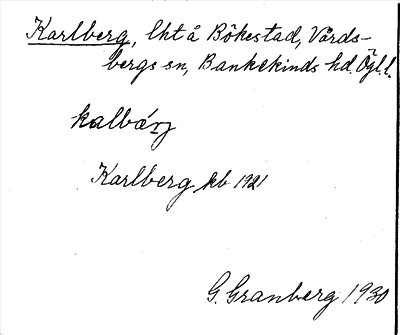 Karlberg, lht å Bökestad, Vårds-
bergs sn, Bankekinds hd. Ögl. l.
kalbærj
Karlberg kb 1921
G. Granberg 1930